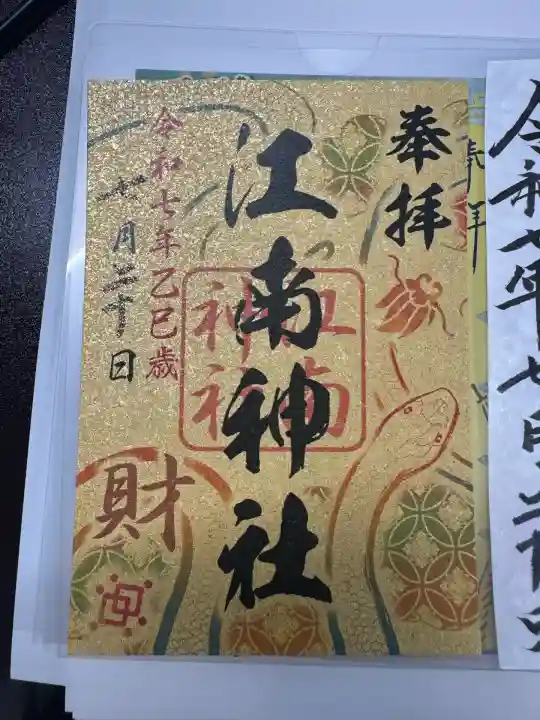 令和七年七月二十
奉拝
奉拝
江南神社
江南
神社
令和七年乙巳歳
七月二十日
財